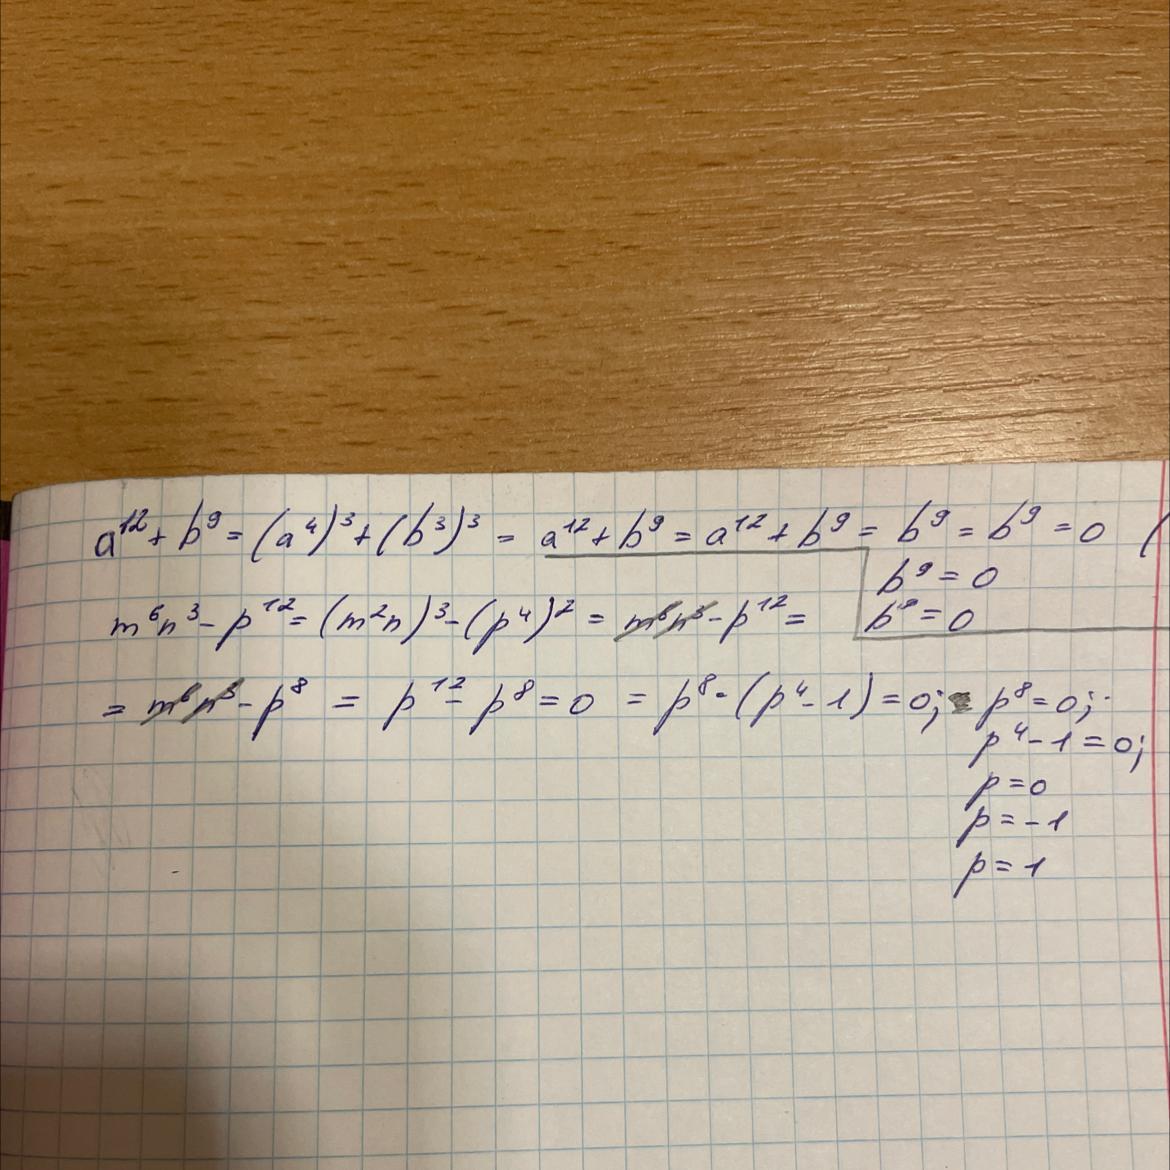 a¹² + b⁹ = (a⁴)³ + (b³)³ = a¹² + b⁹ = a¹² + b⁹ = b⁹ = b⁹ = 0 (
b⁹ = 0
m⁶n³ - p¹² = (m²n)³ - (p⁴)² = m⁶n³ - p¹² =
b⁹ = 0
= m⁶n³ - p⁸ = p¹² - p⁸ = 0 = p⁸ · (p⁴ - 1) = 0; p⁸ = 0;
p⁴ - 1 = 0;
p = 0
p = -1
p = 1